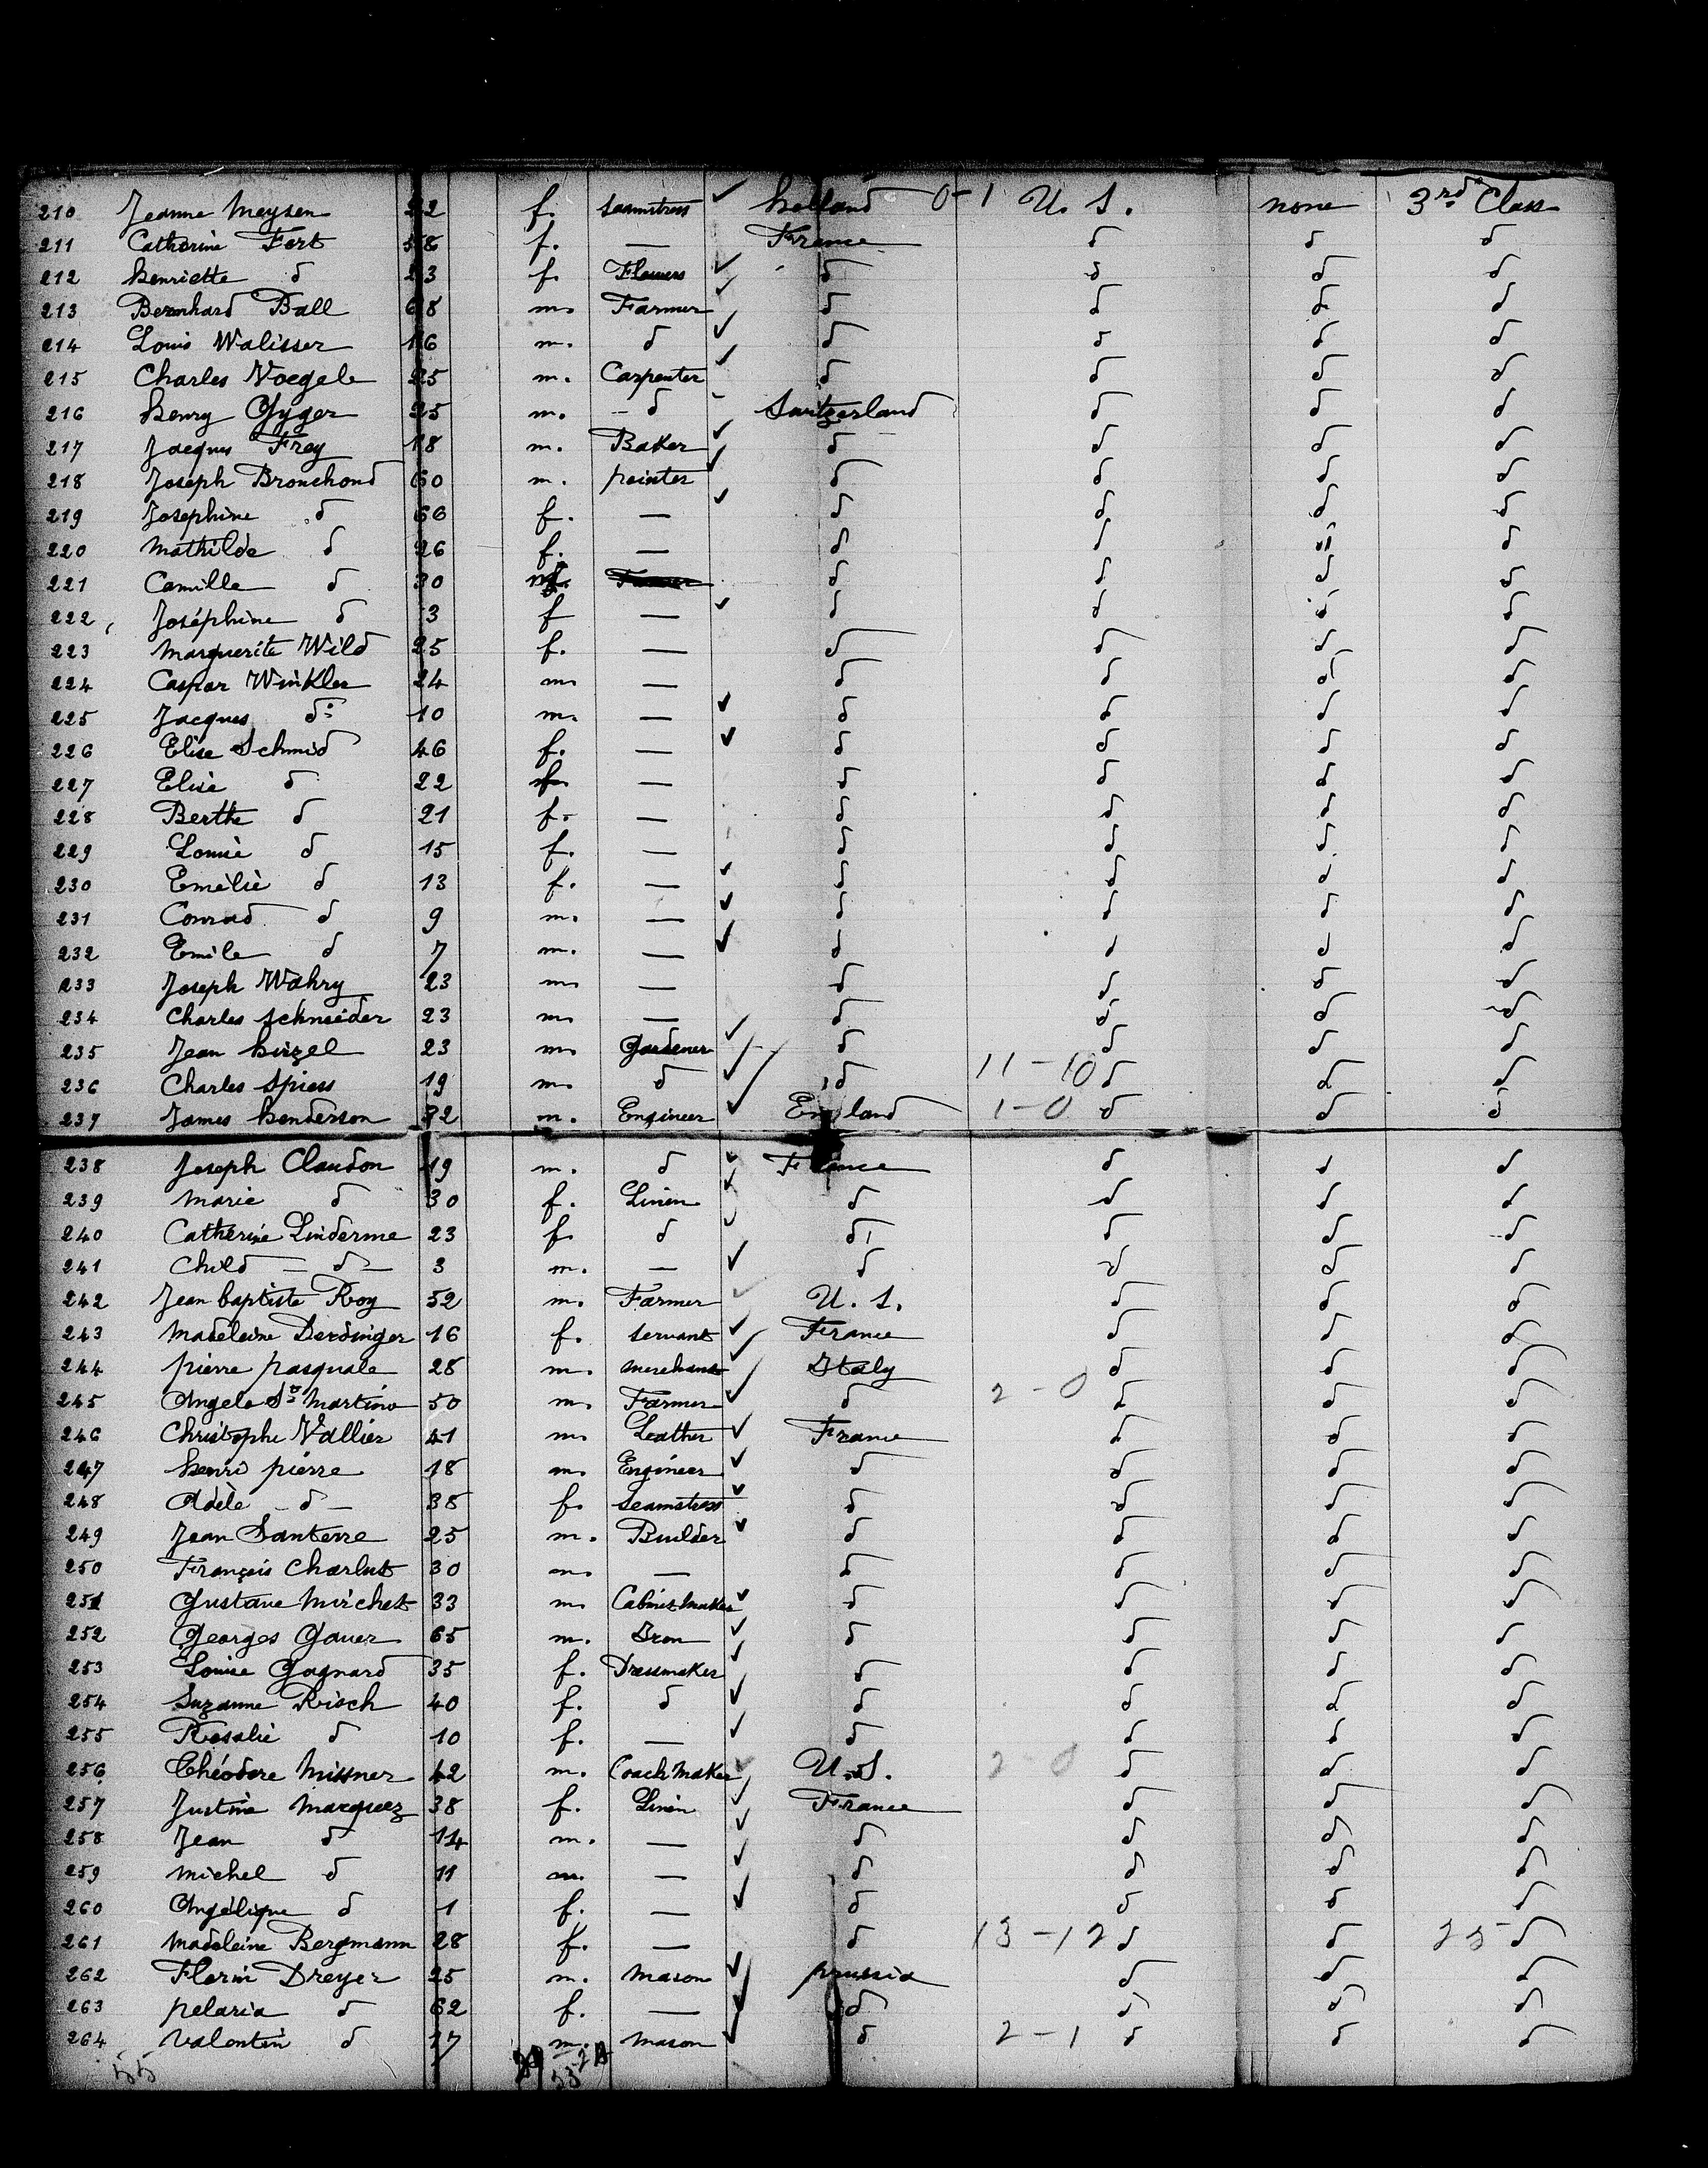 210 Jeanne Meysen 22 f. seamstress ✓ holland 0-1 U. S. none 3rd Class
211 Catherine Fert 58 f. — France d d d
212 henriette d 23 f. Flowers ✓ d d d d
213 Bernhard Ball 68 m. Farmer ✓ d d d d
214 Louis Walisser 16 m. d ✓ d d d d
215 Charles Voegele 25 m. Carpenter ✓ d d d d
216 henry Gyger 25 m. d Switzerland d d d
217 Jacques Frey 18 m. Baker ✓ d d d d
218 Joseph Bronchond 60 m. painter ✓ d d d d
219 Josephine d 66 f. — ✓ d d d d
220 Mathilde d 26 f. — d d d d
221 Camille d 30 f. d d d d
222 Joséphine d 3 f — ✓ d d d d
223 Marguerite Wild 25 f. — d d d d
224 Caspar Winkler 24 m. — d d d d
225 Jacques do 10 m. — ✓ d d d d
226 Elise Schmid 46 f. — ✓ d d d d
227 Elise d 22 f. — d d d d
228 Berthe d 21 f. — d d d d
229 Louise d 15 f. — d d d d
230 Emélie d 13 f. — ✓ d d d d
231 Conrad d 9 m. — ✓ d d d d
232 Emile d 7 m. — ✓ d d d d
233 Joseph Wahry 23 m. — d d d d
234 Charles Schneider 23 m. — d d d d
235 Jean hirzel 23 m. Gardener ✓ d d d d
236 Charles Spiess 19 m. d ✓ d 11-10 d d d
237 James henderson 32 m. Engineer ✓ England 1-0 d d d
238 Joseph Claudon 19 m. d ✓ France d d d
239 Marie d 30 f. Linen ✓ d d d d
240 Catherine Linderme 23 f. d ✓ d d d d
241 Child — d — 3 m. — ✓ d d d d
242 Jean baptiste Roy 52 m. Farmer ✓ U. S. d d d
243 Madeleine Derdinger 16 f. servant ✓ France d d d
244 pierre pasquale 28 m. merchant ✓ Italy d d d
245 Angelo St Martino 50 m. Farmer ✓ d 2-0 d d d
246 Christophe Vallier 41 m. Leather ✓ France d d d
247 henri pierre 18 m. Engineer ✓ d d d d
248 Adèle — d — 38 f. seamstress ✓ d d d d
249 Jean Santerre 25 m. Builder ✓ d d d d
250 François Charlut 30 m. — d d d d
251 Gustave Mirchet 33 m. Cabinetmaker ✓ d d d d
252 Georges Gauer 65 m. Iron ✓ d d d d
253 Louise Gagnard 35 f. Dressmaker ✓ d d d d
254 Suzanne Risch 40 f. d ✓ d d d d
255 Rosalie d 10 f. — ✓ d d d d
256 Théodore Missner 42 m. Coach Maker ✓ U. S. 2-0 d d d
257 Justine Marquez 38 f. Linen ✓ France d d d
258 Jean d 14 m. — ✓ d d d d
259 Michel d 11 m. — ✓ d d d d
260 Angélique d 1 f. — ✓ d d d d
261 Madeleine Bergmann 28 f. — d 13-12 d d 25 d
262 Florin Dreyer 25 m. Mason ✓ prussia d d d
263 pelaria d 62 f. — ✓ d d d d
264 Valentin d 17 m. Mason ✓ d 2-1 d d d
55